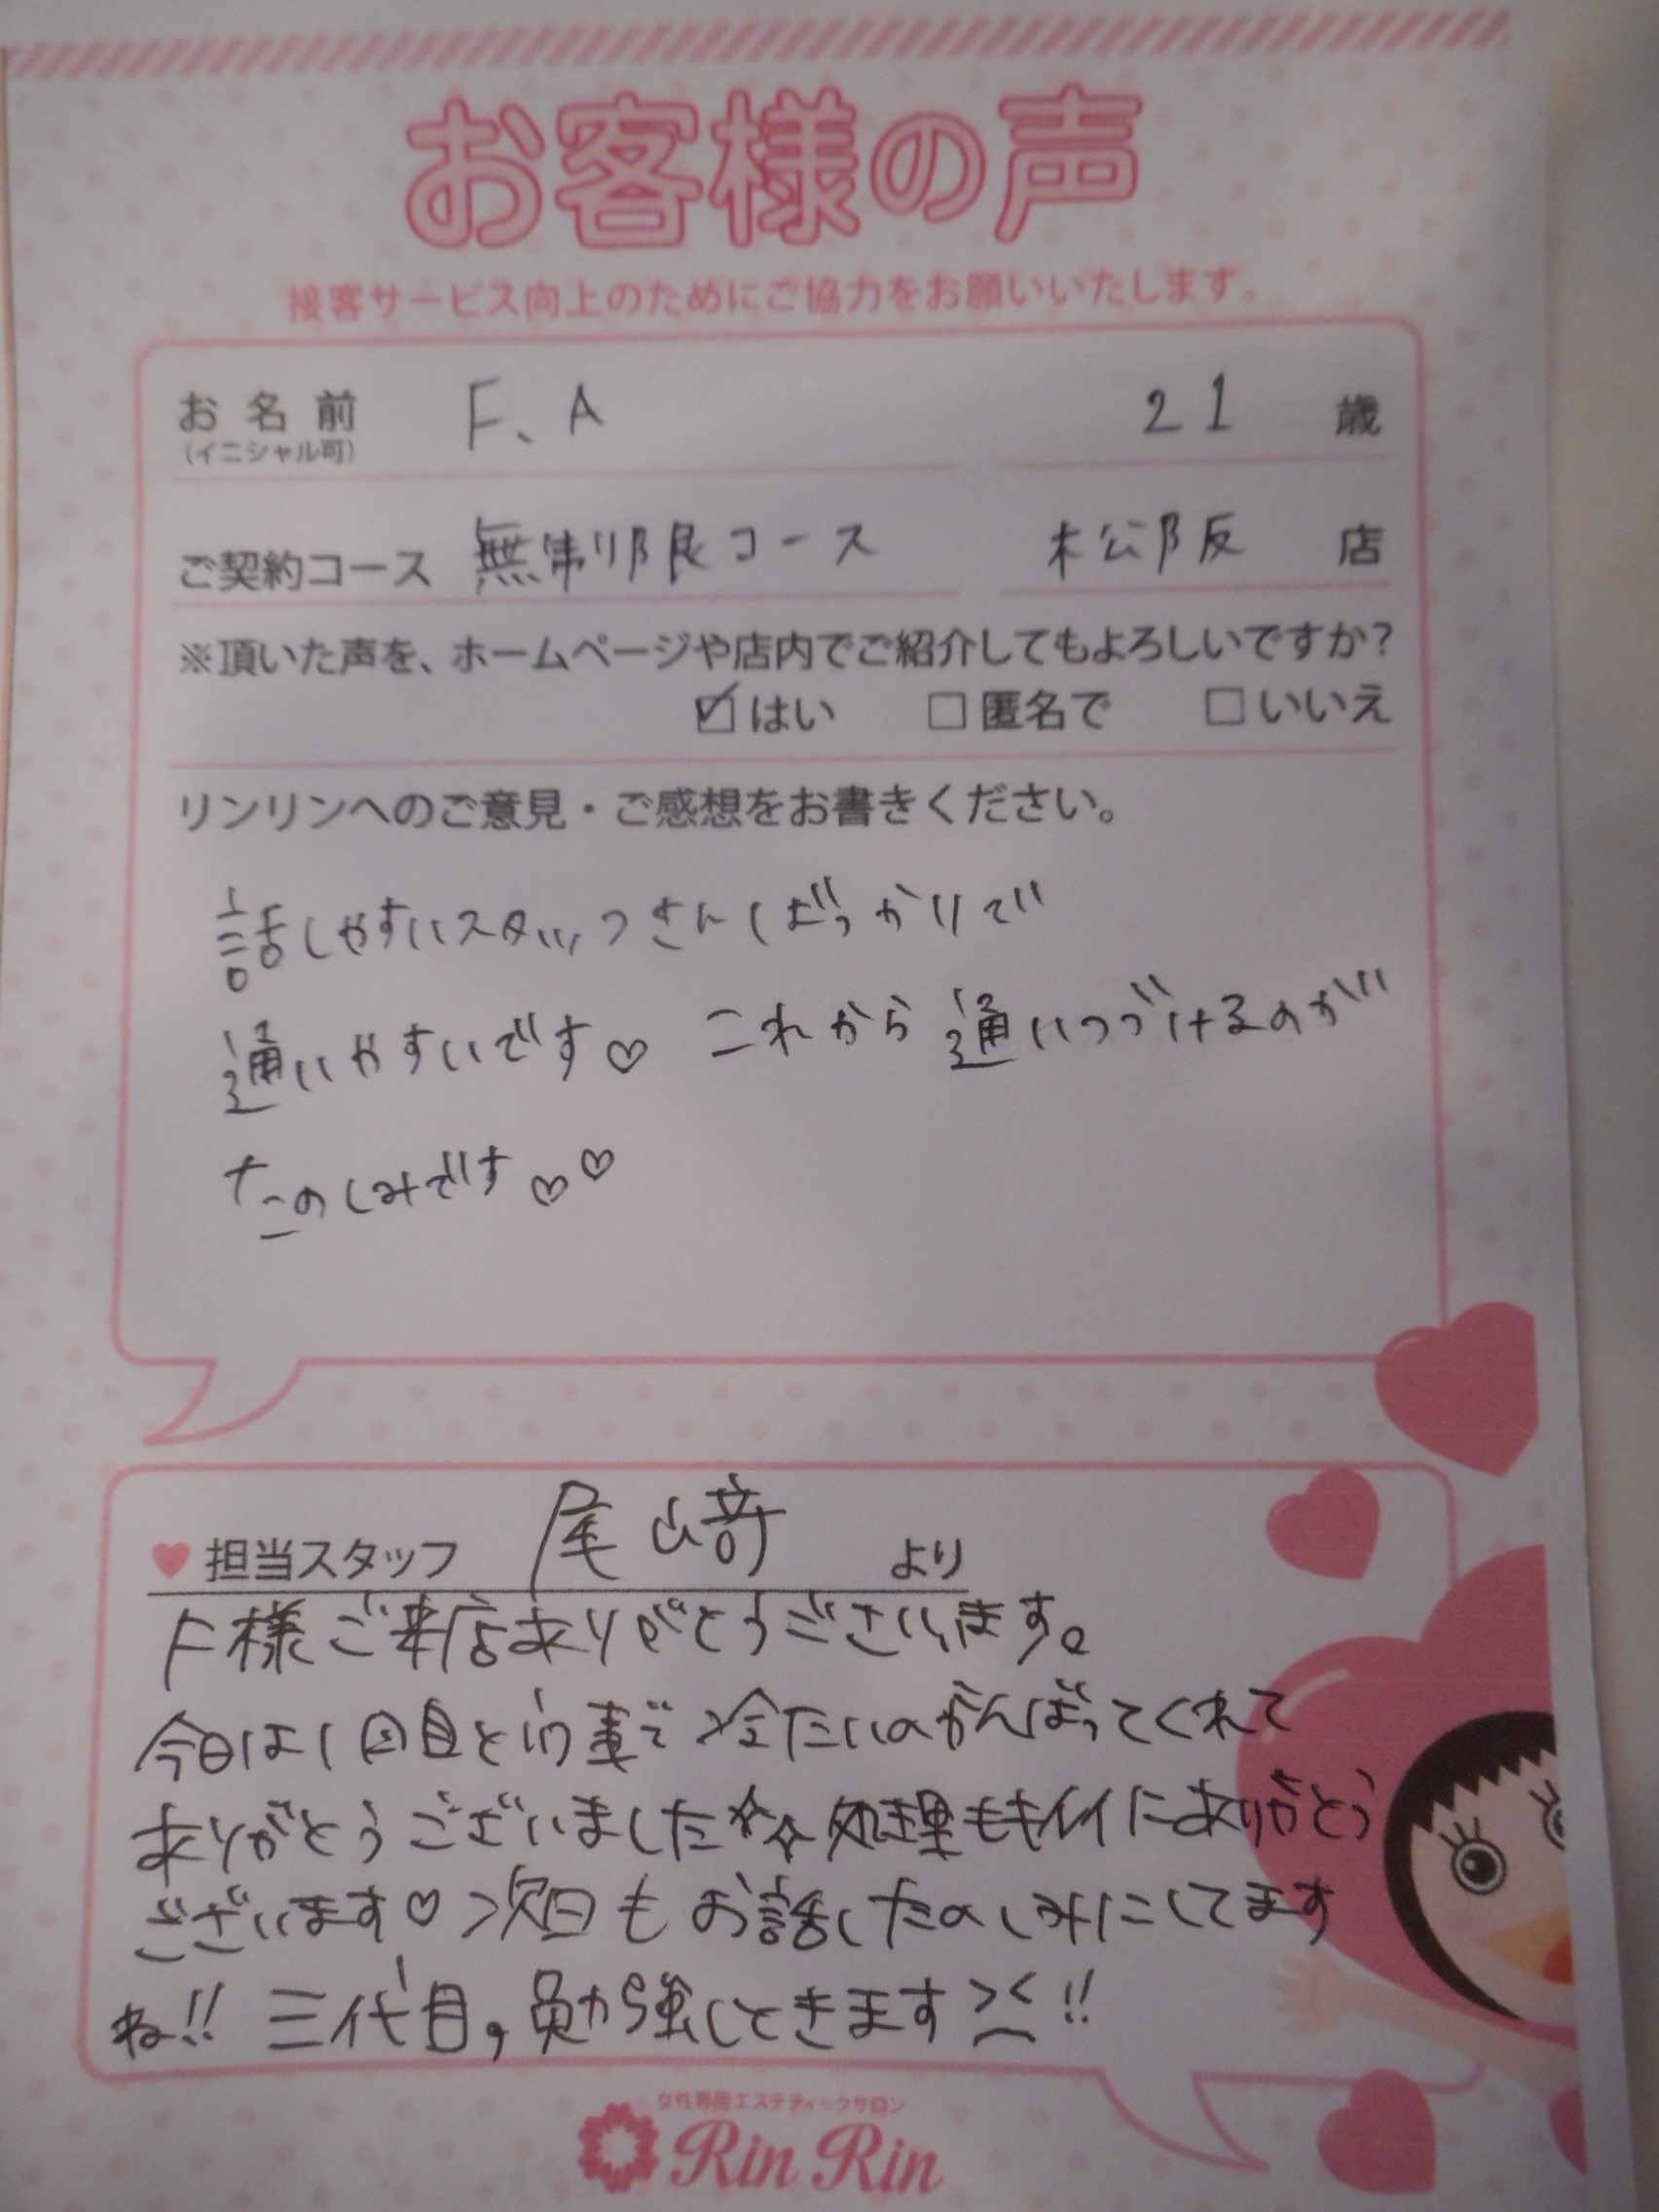 お客様の声
接客サービス向上のためにご協力をお願いいたします。
お名前 F、A 21 歳
(イニシャル可)
ご契約コース 無制限コース 松阪 店
※頂いた声を、ホームページや店内でご紹介してもよろしいですか?
☑はい □匿名で □いいえ
リンリンへのご意見・ご感想をお書きください。
話しやすいスタッフさんばっかりで
通いやすいです♡ これから通いつづけるのが
たのしみです♡♡
♥担当スタッフ 尾﨑 より
F様ご来店ありがとうございます。
今日は1回目と言う事で冷たいのがんばってくれて
ありがとうございました☆☆処理もキレイにありがとう
ございます♡次回もお話したのしみにしてます
ね!! 三代目,勉強しときます><!!
女性専用エステティックサロン
Rin Rin